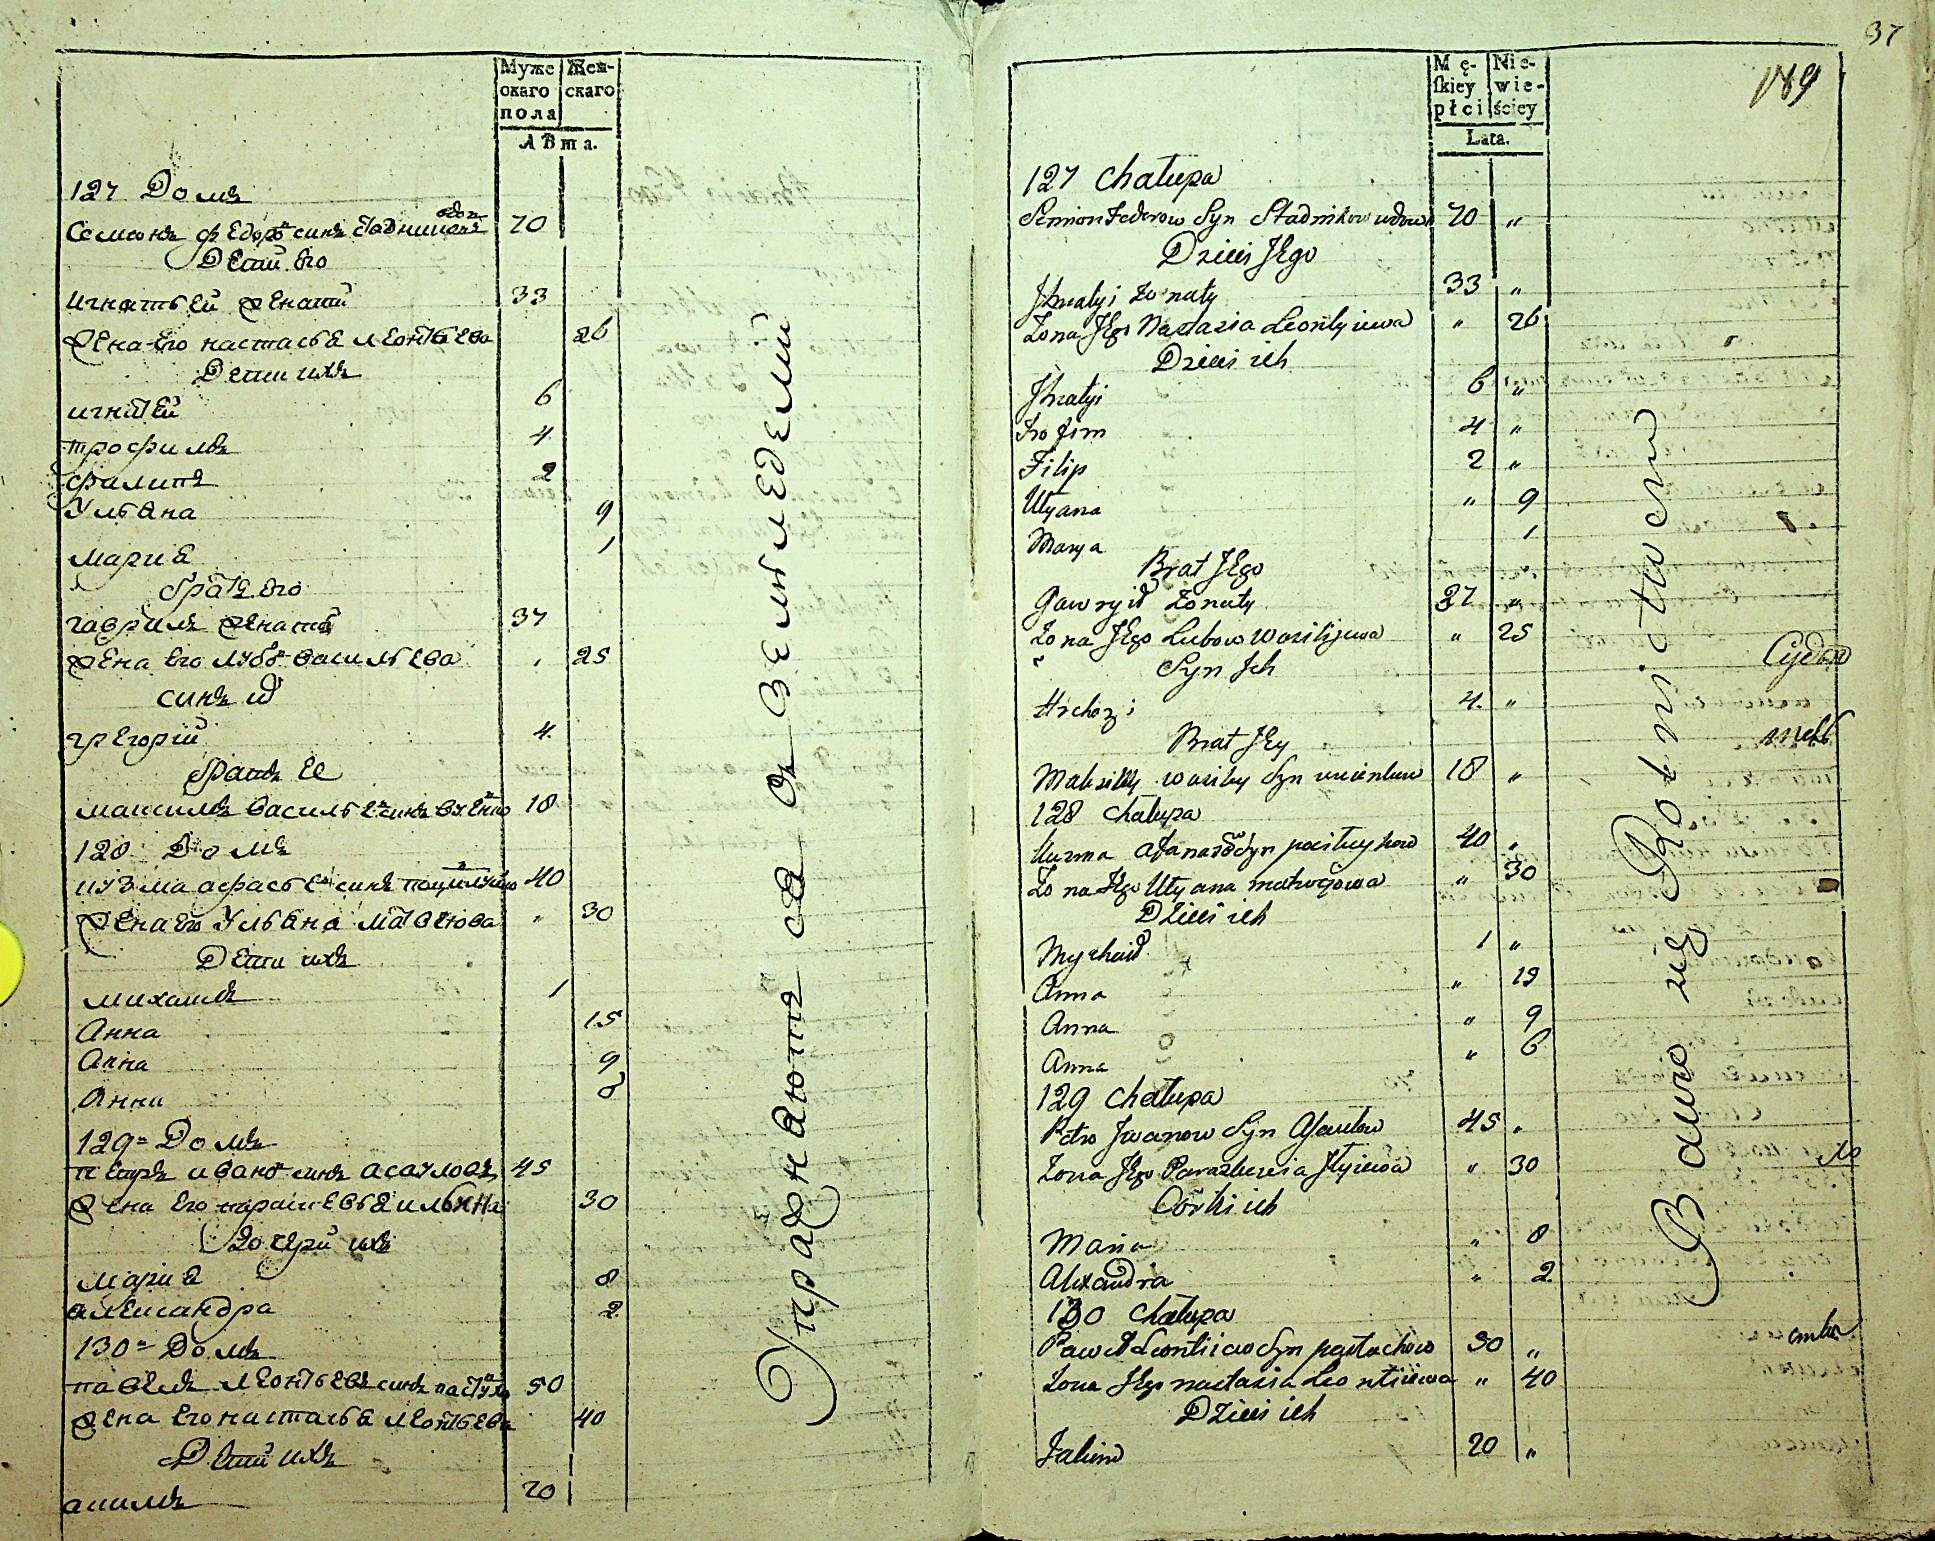 Муже
скаго
пола
Жен-
скаго
Лѣта.
127 Домъ
Семионъ Федоровъ синъ Стадниковъ вдов
Дети Его
70
игнатьей женатй
33
жена Его настасья леонтьева
26
Дети ихъ
игнатей
6
трофимъ
4
филипъ
2
Ульяна
9
мария
1
братъ Его
гаврилъ женатй
37
жена Его любовь васильева
25
синъ их
григорий
4
братъ Ее
максимъ василь синъ
18
128 Домъ
кузма синъ
40
жена Его Ульяна
30
Дети ихъ
михаилъ
1
Анна
15
Анна
9
Анна
8
129 = Домъ
петръ ивановъ синъ асауловъ
45
жена Его парасковья ильина
30
Дочери ихъ
мария
8
александра
2
130 = Домъ
павелъ леонтьевъ синъ
50
жена Его настасья леонтьева
40
Дети ихъ
акимъ
20
Упражняются въ земледелии
37
189
Mę-
skiey
płci
Nie-
wie-
ściey
Lata.
127 Chałupa
Semion Fedorow Syn Stadnikow wdowi 70 „
Dzieci Jego
Jhnatyi żonaty 33 „
Żona Jego Nastazia Leontyiewa „ 26
Dzieci ich
Jhnatyi 6 „
Trofim 4 „
Filip 2 „
Ulyana „ 9
Marya 1
Brat Jego
Gawrył żonaty 37 „
Żona Jego Lubow Wasilijewa „ 25
Syn Ich
Hrehory 4 „
Brat Jey
Syn 18 „
128 Chałupa
Kuzma Syn pastuchow 40 „
Żona Jego Ulyana „ 30
Dzieci ich
Mychaił 1 „
Anna „ 15
Anna „ 9
Anna „ 6
129 Chałupa
Petro Jwanow Syn 45 „
Żona Jego „ 30
Corki ich
Maria „ 8
Alexandra „ 2
130 Chałupa
Paweł Leontiiew Syn pastuchow 50 „
Żona Jego nastazia Leontiiewa „ 40
Dzieci ich
Jakim 20 „
Bawio się Rolnictwem